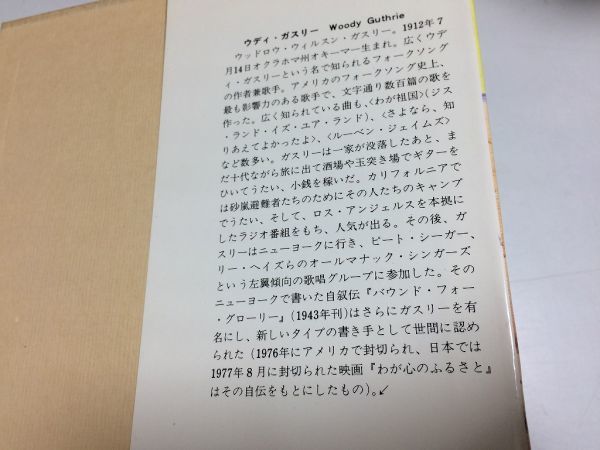 ウディ・ガスリー Woody Guthrie
ウッドロウ・ウィルスン・ガスリー。1912年7
月14日オクラホマ州オキーマー生まれ。広くウデ
ィ・ガスリーという名で知られるフォークソング
の作者兼歌手。アメリカのフォークソング史上、
最も影響力のある歌手で、文字通り数百篇の歌を
作った。広く知られている曲も、〈わが祖国〉(ジス
・ランド・イズ・ユア・ランド)、〈さよなら、知
りあえてよかったよ〉、〈ルーベン・ジェイムズ〉
など数多い。ガスリーは一家が没落したあと、ま
だ十代ながら旅に出て酒場や玉突き場でギターを
ひいてうたい、小銭を稼いだ。カリフォルニアで
は砂嵐避難者たちのためにその人たちのキャンプ
でうたい、そして、ロス・アンジェルスを本拠に
したラジオ番組をもち、人気が出る。その後、ガ
スリーはニューヨークに行き、ピート・シーガー、
リー・ヘイズらのオールマナック・シンガーズ
という左翼傾向の歌唱グループに参加した。その
ニューヨークで書いた自叙伝『バウンド・フォー
・グローリー』(1943年刊)はさらにガスリーを有
名にし、新しいタイプの書き手として世間に認め
られた(1976年にアメリカで封切られ、日本では
1977年8月に封切られた映画『わが心のふるさと』
はその自伝をもとにしたもの)。↙